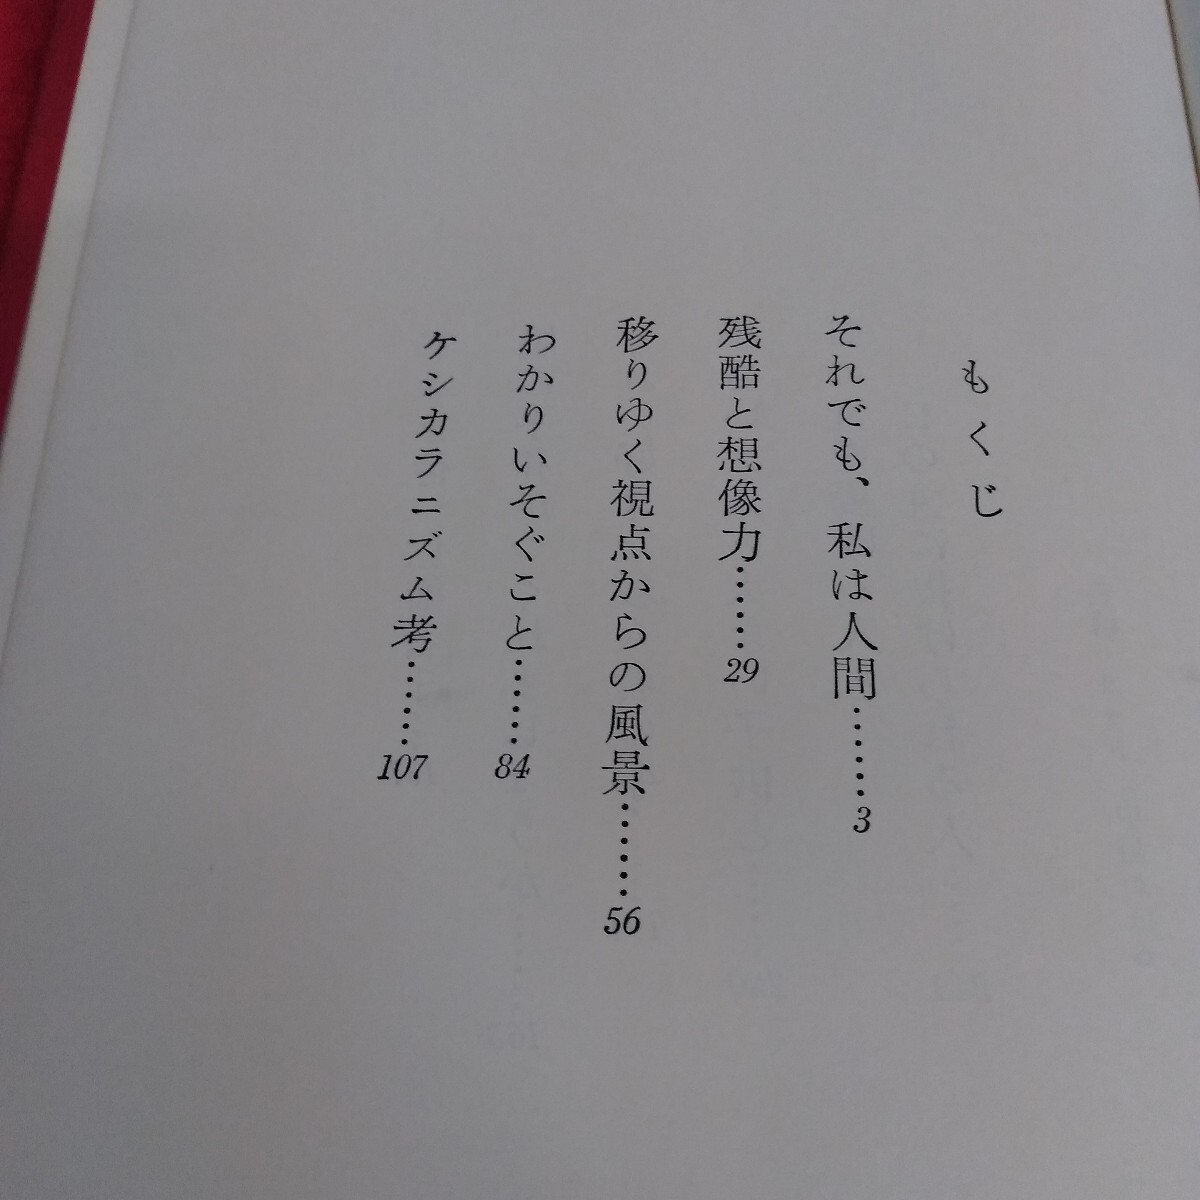 もくじ
それでも、私は人間……3
残酷と想像力……29
移りゆく視点からの風景……56
わかりいそぐこと……84
ケシカラニズム考……107